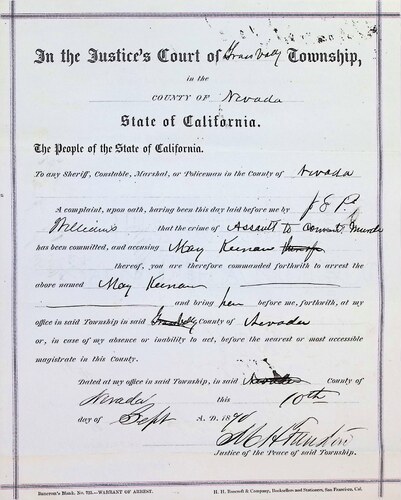 In the Justice's Court of Grass Vally Township,
in the
COUNTY OF Nevada
State of California.
The People of the State of California.
To any Sheriff, Constable, Marshal, or Policeman in the County of Nevada
A complaint, upon oath, having been this day laid before me by J E P.
Williams that the crime of Assault to Commit Murder
has been committed, and accusing May Keenan
thereof, you are therefore commanded forthwith to arrest the
above named May Keenan
and bring her before me, forthwith, at my
office in said Township in said Grass Vally County of Nevada
or, in case of my absence or inability to act, before the nearest or most accessible
magistrate in this County.
Dated at my office in said Township, in said Nevada County of
Nevada this 10th
day of Sept A. D. 18
M H Funston
Justice of the Peace of said Township.
Bancroft's Blank, No. 723.—WARRANT OF ARREST. H. H. Bancroft & Company, Booksellers and Stationers, San Francisco, Cal.